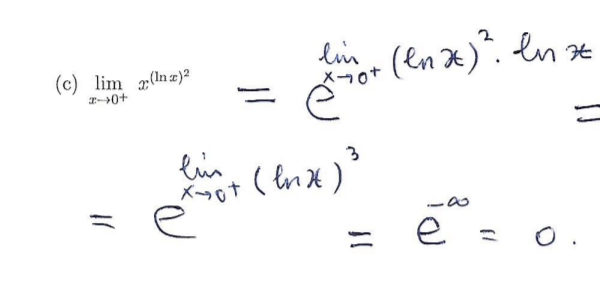 (c) lim x→0+ x^(ln x)^2 = e^lim x→0+ (ln x)^2 · ln x =
= e^lim x→0+ (ln x)^3 = e^-∞ = 0.